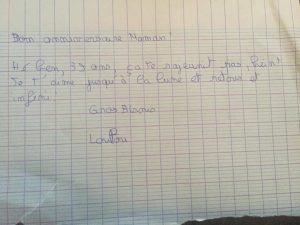 Bon anniversaire Maman!
Hé bien, 39 ans, ça te rajeunit pas, hein!
Je t'aime jusqu'à la lune et retour et
infini.
Gros Bisous
Loulou